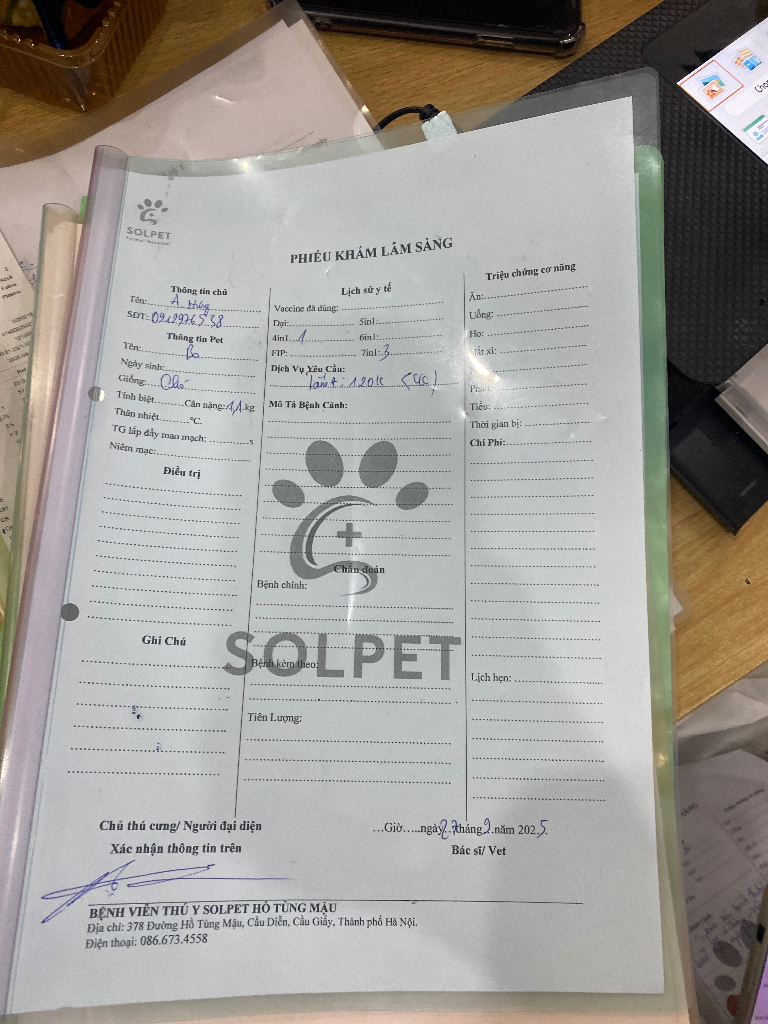 SOLPET
Animal Hospital
PHIẾU KHÁM LÂM SÀNG
Thông tin chủ
Tên: A
SĐT: 0912976538
Thông tin Pet
Tên: Bo
Ngày sinh:
Giống: Chó
Tính biệt Cân nặng: 1,1 kg
Thân nhiệt °C.
TG lấp đầy mao mạch: s
Niêm mạc:
Điều trị
Ghi Chú
Lịch sử y tế
Vaccine đã dùng:
Dại: 5in1:
4in1 1 6in1:
FIP: 7in1: 3
Dịch Vụ Yêu Cầu:
120k (CK)
Mô Tả Bệnh Cảnh:
Chẩn đoán
Bệnh chính:
SOLPET
Bệnh kèm theo:
Tiên Lượng:
Triệu chứng cơ năng
Ăn:
Uống:
Ho:
Hắt xì:
Phân:
Tiểu:
Thời gian bị:
Chi Phí:
Lịch hẹn:
Chủ thú cưng/ Người đại diện
Xác nhận thông tin trên
...Giờ.....ngày 27 tháng 2 năm 2025.
Bác sĩ/ Vet
BỆNH VIỆN THÚ Y SOLPET HỒ TÙNG MẬU
Địa chỉ: 378 Đường Hồ Tùng Mậu, Cầu Diễn, Cầu Giấy, Thành phố Hà Nội.
Điện thoại: 086.673.4558